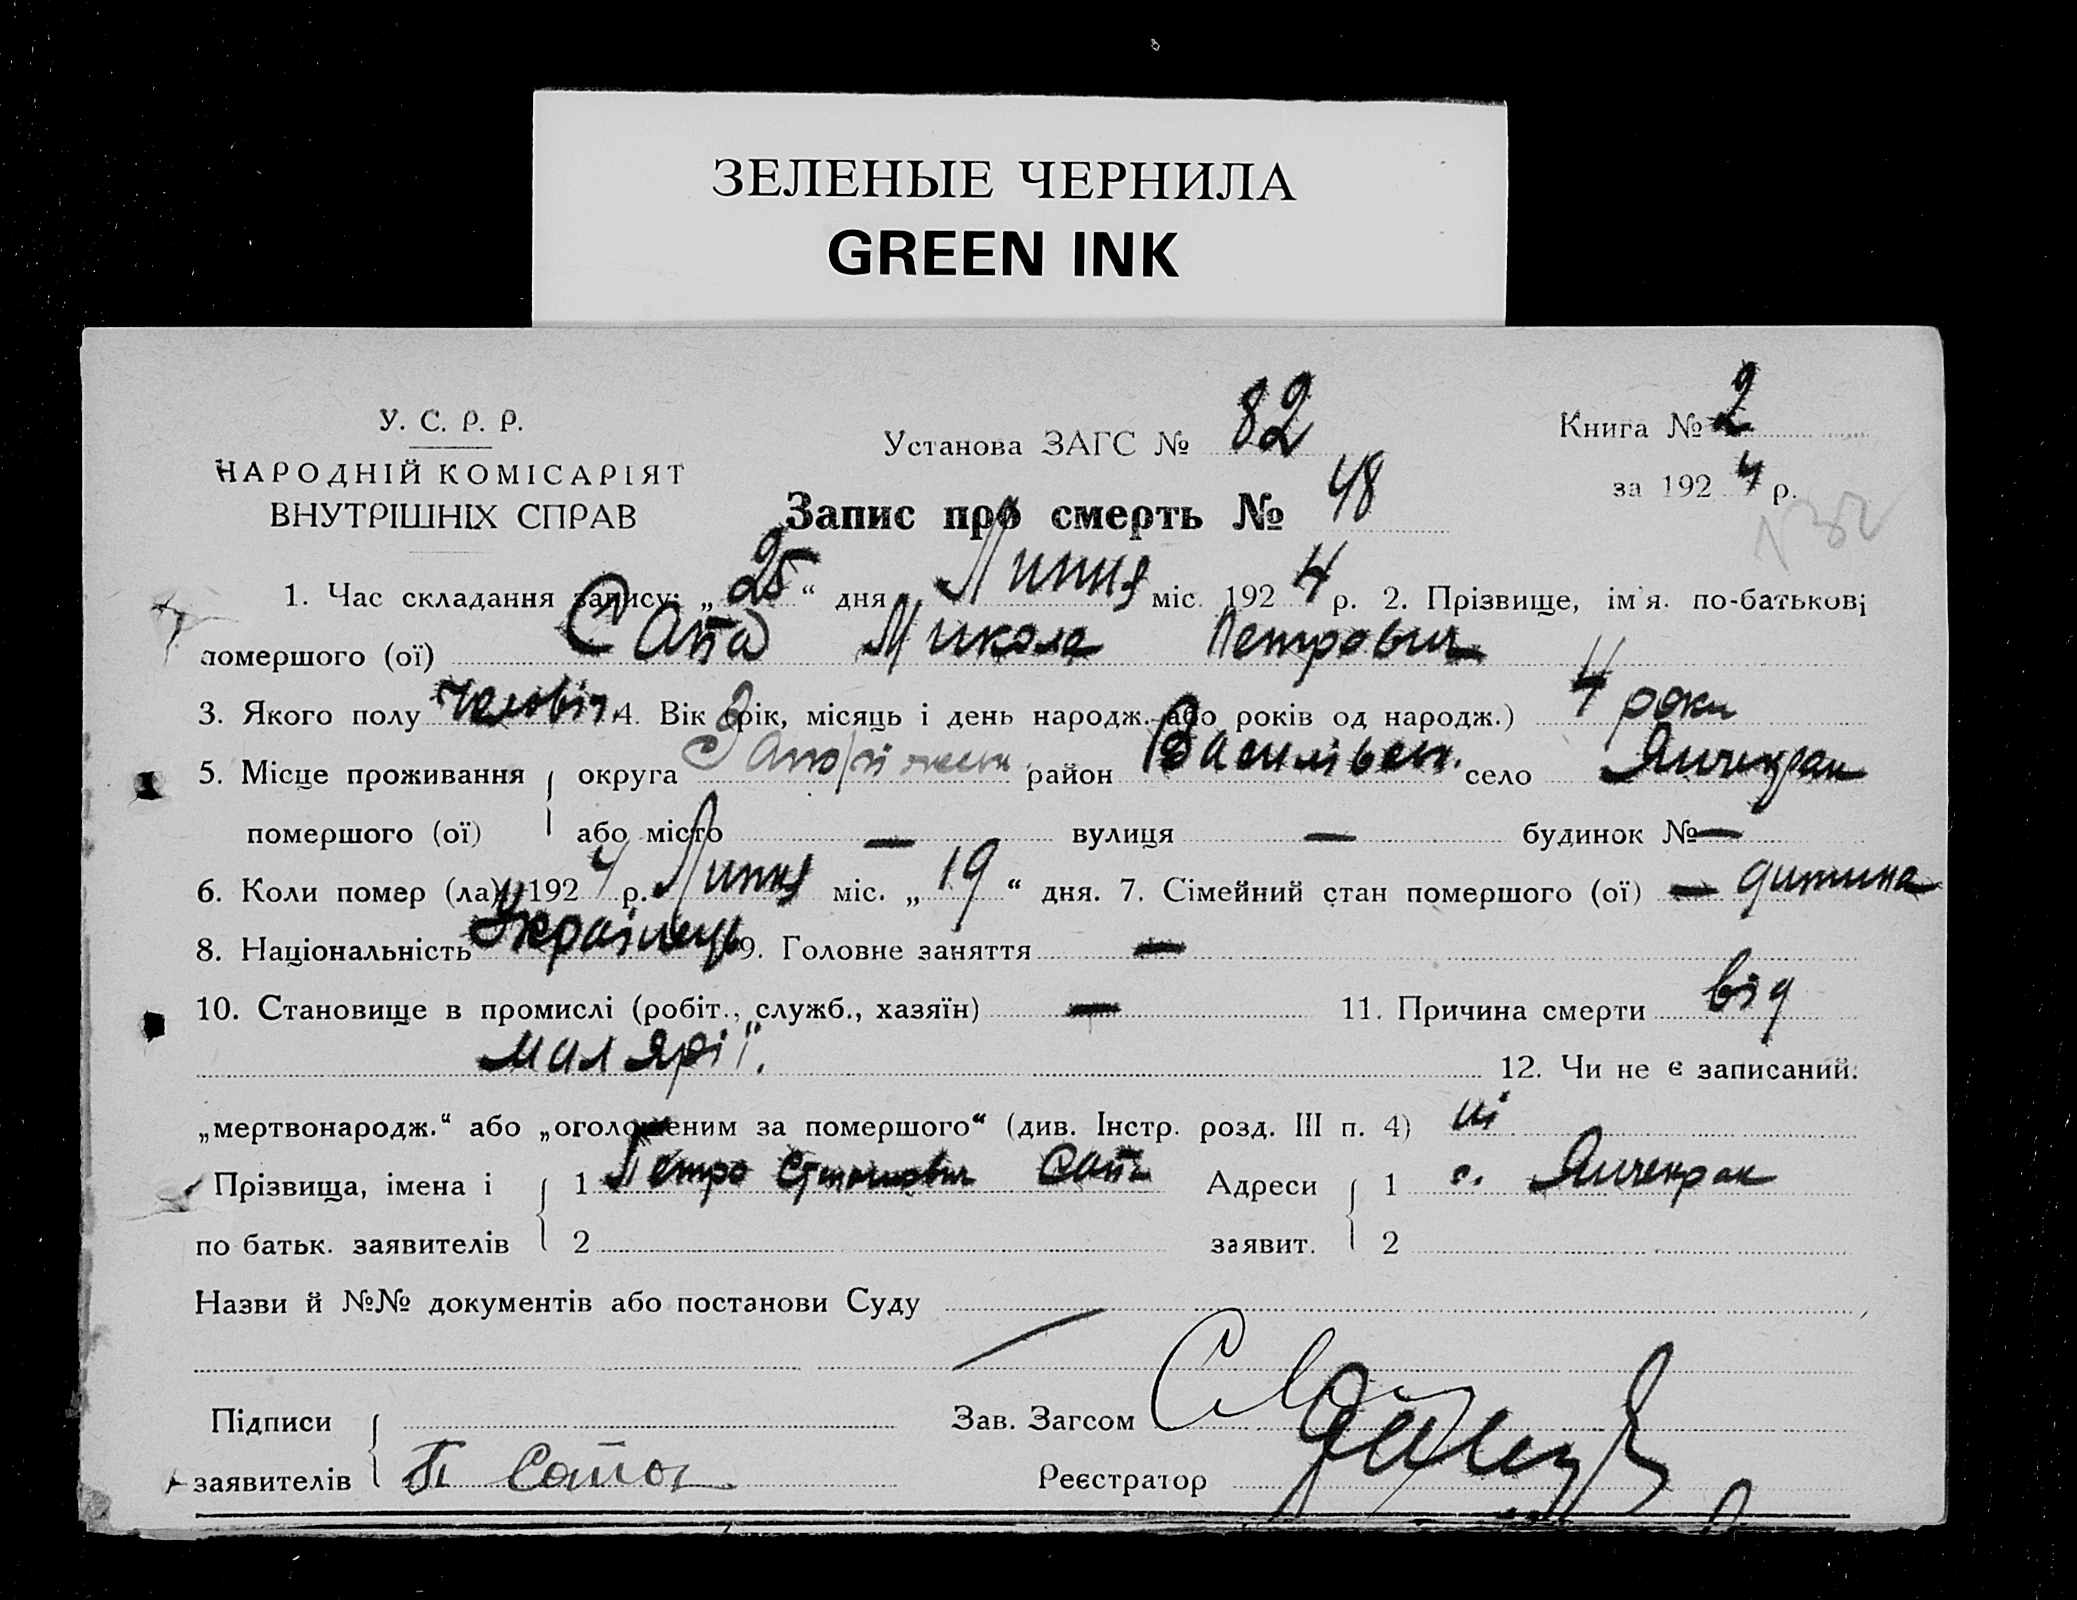 ЗЕЛЕНЫЕ ЧЕРНИЛА
GREEN INK
У. С. Р. Р.
НАРОДНІЙ КОМІСАРІЯТ
ВНУТРІШНІХ СПРАВ
Установа ЗАГС № 82
Книга № 2
за 1924 р.
Запис про смерть № 48
1. Час складання запису: „25“ дня Липня міс. 1924 р. 2. Прізвище, ім'я. по-батькові
помершого (ої) Сапа Микола Петрович
3. Якого полу чоловіч. 4. Вік (рік, місяць і день народж. або років од народж.) 4 роки
5. Місце проживання округа Запоріжськ. район Васильевск. село Янчекрак
помершого (ої) або місто — вулиця — будинок № —
6. Коли помер (ла) 1924 р. Липня міс. „19“ дня. 7. Сімейний стан помершого (ої) — дитина
8. Національність Українець 9. Головне заняття —
10. Становище в промислі (робіт., служб., хазяїн) — 11. Причина смерти від
малярії. 12. Чи не є записаний:
„мертвонародж.“ або „оголошеним за помершого“ (див. Інстр. розд. III п. 4) ні
Прізвища, імена і 1 Петро Сапа Адреси 1 с. Янчекрак
по батьк. заявителів 2 заявит. 2
Назви й №№ документів або постанови Суду
Підписи Зав. Загсом
заявителів П Сапа Реєстратор